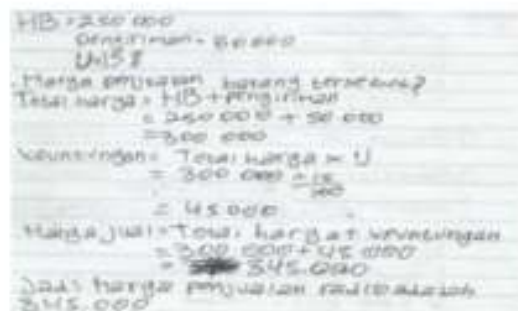 HB = 250 000
pengiriman = 50 000
U = 15 %
Harga penjualan barang tersebut?
Total harga = HB + pengiriman
= 250 000 + 50 000
= 300 000
keuntungan = Total harga × U
= 300 000 × 15/100
= 45 000
Harga jual = Total harga + keuntungan
= 300 000 + 45 000
= 345.000
Jadi harga penjualan radio adalah
345.000